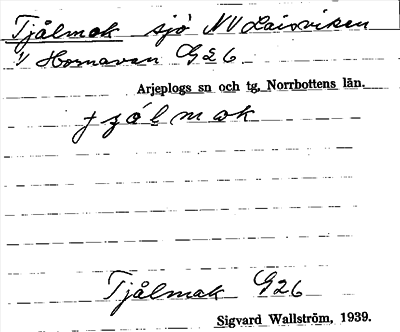 Tjålmak sjö NV Laisviken
i/ Hornavan G26
Arjeplogs sn och tg, Norrbottens län.
Tjålmak G26
Sigvard Wallström, 1939.